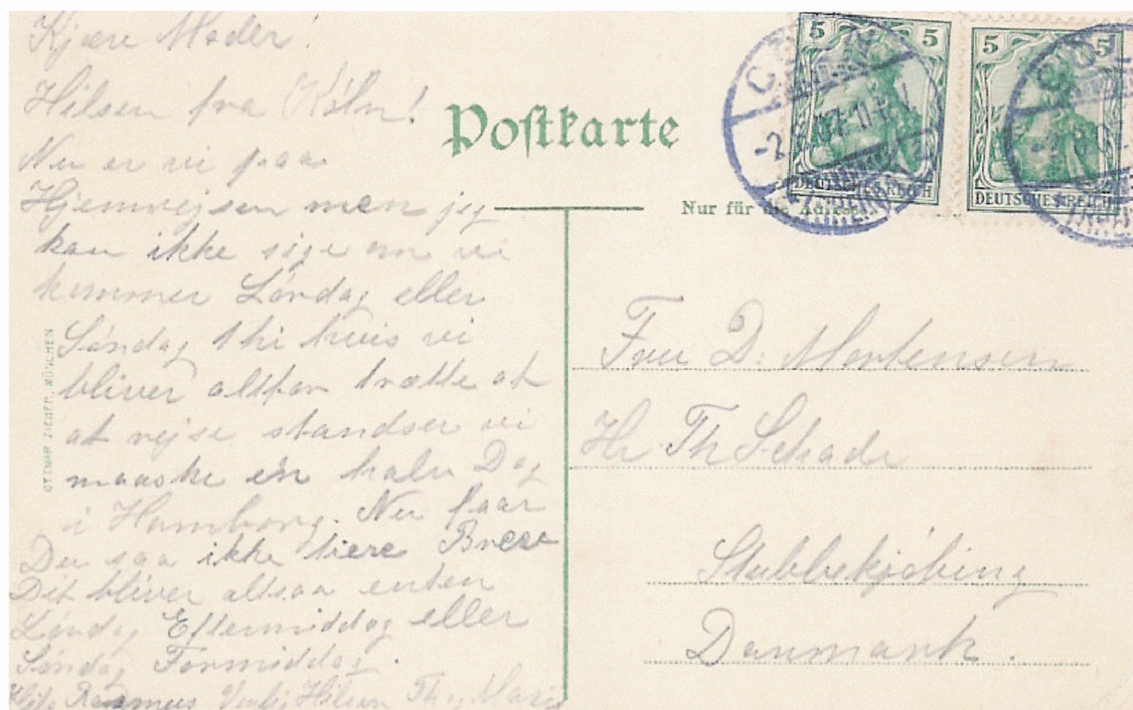 Kjære Moder!
Hilsen fra Köln!
Nu er vi paa
Hjemrejsen men jeg
kan ikke sige om vi
kommer Lørdag eller
Søndag thi hvis vi
bliver altfor trætte af
at rejse standser vi
maaske en halv Dag
i Hamborg. Nu faar
Du saa ikke flere Breve
Det bliver altsaa enten
Lørdag Eftermiddag eller
Søndag Formiddag.
Rasmus Hilsen Th. Marie
OTTMAR ZIEHER, MÜNCHEN
Postkarte
Nur für die Adresse
5 5
DEUTSCHES REICH
5
DEUTSCHES REICH
Fru D. Mortensen
Hr. Th Schade
Stubbekjøbing
Danmark.